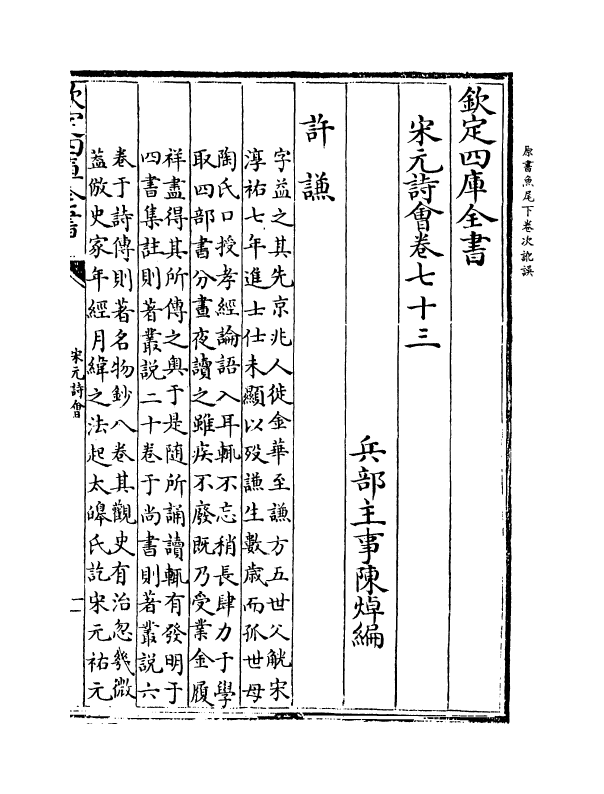 原書魚尾下卷次訛誤
欽定四庫全書
宋元詩會卷七十三
兵部主事陳焯編
許謙
字益之其先京兆人徙金華至謙方五世父觥宋
淳祐七年進士仕未顯以歿謙生數歲而孤世母
陶氏口授孝經論語入耳輒不忘稍長肆力于學
取四部書分晝夜讀之雖疾不廢既乃受業金履
祥盡得其所傳之奧于是隨所誦讀輒有發明于
四書集註則著叢説二十卷于尚書則著叢説六
卷于詩傳則著名物鈔八卷其觀史有治忽幾微
蓋倣史家年經月緯之法起太皞氏訖宋元祐元
欽定四庫全書
宋元詩會
一